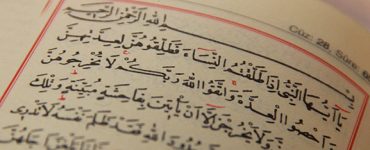 Cüz: 28, Sûre: 6
اللّٰهِ الرَّحْمٰنِ الرَّحِيمِ
يَٓا اَيُّهَا النَّبِيُّ اِذَا طَلَّقْتُمُ النِّسَٓاءَ فَطَلِّقُوهُنَّ لِعِدَّتِهِنَّ
وَاَحْصُوا الْعِدَّةَ وَاتَّقُوا اللّٰهَ رَبَّكُمْ لَا تُخْرِجُوهُنَّ
وَلَا يَخْرُجْنَ اِلَّٓا اَنْ يَأْتِينَ بِفَاحِشَةٍ مُبَيِّنَةٍ وَتِلْكَ
اللّٰهِ فَقَدْ ظَلَمَ نَفْسَهُ لَا تَدْرِي